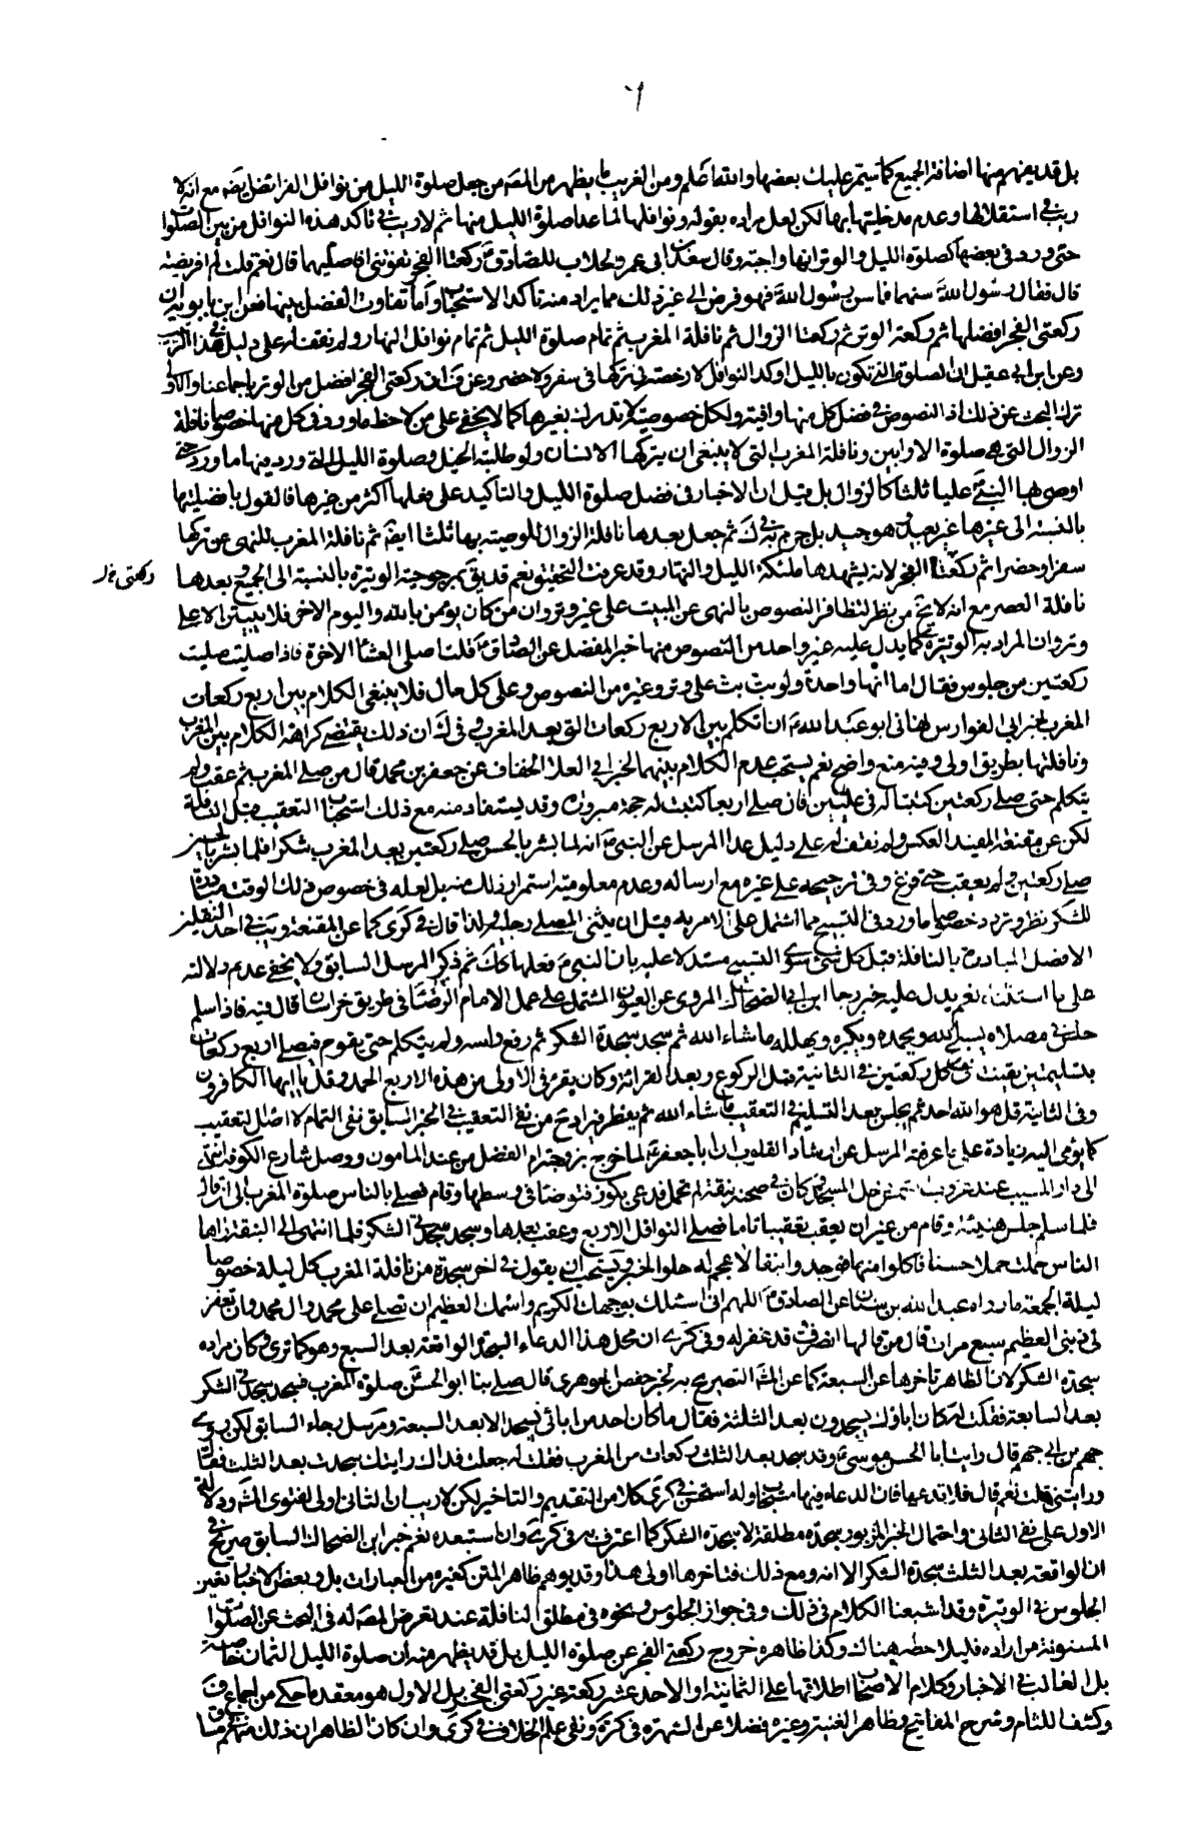 ٦
بل قد يفهم منها اضافة الجميع كما ستمر عليك بعضها والله اعلم ومن الغريب ما يظهر من المصـ من جعل صلوة الليل من نوافل الفرائض ايضه مع انه لا
ريب في استقلالها وعدم مدخليتها بها لكن لعل مراده بقوله ونوافلها لما عدا صلوة الليل منها ثم لا ريب في تاكد هذه النوافل من بين الصلوات
حتى ورد في بعضها كصلوة الليل والوتر انها واجبة وقال سعد بن ابى عمرو الجلاب للصادق ع ركعتا الفجر تفوتنى افاصليهما قال نعم قلت لم افريضة
قال فقال رسول الله سنهما فما سن رسول الله فهو فرض الى غير ذلك مما يراد منه تاكد الاستحباب واما تفاوت الفضل بينها فعن ابن بابويه ان
ركعتى الفجر افضلها ثم ركعة الوتر ثم ركعتا الزوال ثم نافلة المغرب ثم تمام صلوة الليل ثم تمام نوافل النهار ولم نقف له على دليل في هذا الترتيب
وعن ابن ابي عقيل ان الصلوة التى تكون بالليل اوكد النوافل لا رخصة في تركها في سفر ولا حضر وعن ف ان ركعتى الفجر افضل من الوتر باجماعنا والاولى
ترك البحث عن ذلك اذ النصوص في فضل كل منها وافية ولكل خصوصية لا تدرك بغيرها كما لا يخفى على من لاحظ ما ورد في كل منها خصوصا نافلة
الزوال التى هى صلوة الاوابين ونافلة المغرب التى لا ينبغى ان يتركها الانسان ولو طلبته الخيل وصلوة الليل التى ورد فيها ما ورد حتى
اوصى بها النبي ص عليا ثلثا كالزوال بل قيل ان الاخبار في فضل صلوة الليل والتاكيد على فعلها اكثر من غيرها فالقول بافضليتها
بالنسبة الى غيرها غير بعيد بل هو جيد بل جزم به في ك ثم جعل بعدها نافلة الزوال للوصية بها ثلثا ايضه ثم نافلة المغرب للنهى عن تركها
سفرا وحضرا ثم ركعتا الفجر لانه يشهدها ملئكة الليل والنهار وقد عرفت التحقيق نعم قد يق بمرجوحية الوتيرة بالنسبة الى الجميع وبعدها
ركعتى خ ل
نافلة العصر مع انه لا يخ من نظر لتظافر النصوص بالنهى عن المبيت على غير وتر وان من كان يؤمن بالله واليوم الاخر فلا يبيتن الا على
وتر وان المراد به الوتيرة كما يدل عليه غير واحد من النصوص منها خبر المفضل عن الصادق ع قلت اصلى العشاء الاخرة فاذا صليت صليت
ركعتين من جلوس فقال اما انها واحدة ولو بت بت على وتر وغيره من النصوص وعلى كل حال فلا ينبغى الكلام بين اربع ركعات
المغرب لخبر ابي الفوارس نهانى ابو عبد الله ع ان اتكلم بين الاربع ركعات التى بعد المغرب وفى ك ان ذلك يقتضى كراهة الكلام بين المغرب
ونافلتها بطريق اولى وفيه منع واضح نعم يستحب عدم الكلام بينهما لخبر ابي العلاء الخفاف عن جعفر بن محمد قال من صلى المغرب ثم عقب ولم
يتكلم حتى صلى ركعتين كتبتا له في عليين فان صلى اربعا كتبت له حجة مبرورة وقد يستفاد منه مع ذلك استحباب التعقيب قبل النافلة
لكن عن مقنعة المفيد العكس ولم نقف له على دليل عدا المرسل عن النبي ص انه لما بشر بالحسن صلى ركعتين بعد المغرب شكرا فلما بشر بالحسين
صلى ركعتين ولم يعقب حتى فرغ وفى ترجيحه على غيره مع ارساله وعدم معلومية استمرار ذلك منه بل لعله في خصوص ذلك الوقت مبادرة
للشكر نظر وتردد خصوصا ما ورد في التسبيح مما اشتمل على الامر به قبل ان يثنى المصلى رجليه ولذا قال في كرى كما عن المقنعة ويب في احد النقلين
الافضل المبادرة بالنافلة قبل كل شئ سوى التسبيح مستدلا عليه بان النبي ص فعلها كك ثم ذكر المرسل السابق ولا يخفى عدم دلالته
على ما استثناه نعم يدل عليه خبر رجا ابن ابي الضحاك المروى عن العيون المشتمل على عمل الامام الرضا ع في طريق خراسان قال فيه فاذا سلم
جلس في مصلاه يسبح الله ويحمده ويكبره ويهلله ما شاء الله ثم سجد سجدة الشكر ثم رفع راسه ولم يتكلم حتى يقوم فيصلى اربع ركعات
بتسليمتين يقنت في كل ركعتين في الثانية قبل الركوع وبعد القرائة وكان يقرء في الاولى من هذه الاربع الحمد وقل يا ايها الكافرون
وفى الثانية قل هو الله احد ثم يجلس بعد التسليم في التعقيب ما شاء الله ثم يفطر فيرادح من نفى التعقيب في الخبر السابق نفى التمام لا اصل التعقيب
كما يؤمى اليه زيادة على ما عرفته المرسل عن ارشاد القلوب ان ابا جعفر ع لما خرج بزوجته ام الفضل من عند المامون ووصل شارع الكوفة انتهى
الى دار المسيب عند غروب الشمس دخل المسجد وكان في صحنه نبقة لم تحمل فدعى بكوز فتوضا في وسطها وقام فصلى بالناس صلوة المغرب الى ان قال
فلما سلم جلس هنيئة وقام من غير ان يعقب تعقيبا تاما فصلى النوافل الاربع وعقب بعدها وسجد سجدتى الشكر فلما انتهى الى النبقة راها
الناس حملت حملا حسنا فاكلوا منها فوجدوا نبقا لا عجم له حلوا الخبر ويستحب ان يقول في اخر سجدة من نافلة المغرب كل ليلة خصوصا
ليلة الجمعة ما رواه عبد الله بن سنان عن الصادق ع اللهم انى اسئلك بوجهك الكريم واسمك العظيم ان تصلى على محمد وال محمد وان تغفر
لى ذنبى العظيم سبع مرات قال من قالها انصرف وقد غفر له وفى كرى ان محل هذا الدعاء السجدة الواقعة بعد السبع وهو كما ترى وكان مراده
سجدة الشكر لان الظاهر تاخرها عن السبعة كما عن المشـ التصريح به لخبر حفص الجوهرى قال صلى بنا ابو الحسن صلوة المغرب فسجد سجدتى الشكر
بعد السابعة فقلت له كان اباؤك يسجدون بعد الثلثة فقال ما كان احد من ابائى يسجد الا بعد السبعة ومرسل رجاء السابق لكن روى
جهم بن ابي جهم قال رايت ابا الحسن موسى ع وقد سجد بعد الثلث ركعات من المغرب فقلت له جعلت فداك رايتك سجدت بعد الثلث فقال
ورايتنى قلت نعم قال فلا تدعها فان الدعاء فيها مستجاب ولذا استحسن في كرى كلا من التقديم والتاخير لكن لا ريب ان الثانى اولى لفتوى المشـ ودلالة
الاول على نفى الثانى واحتمال الخبر المزبور سجدة مطلقة لا سجدة الشكر كما اعترف به في كرى وان استبعده نعم خبر ابن الضحاك السابق صريح في
ان الواقعة بعد الثلث سجدة الشكر الا انه ومع ذلك فتاخرها اولى هذا وقد يوهم ظاهر المتن كغيره من العبارات بل وبعض الاخبار تعين
الجلوس في الوتيرة وقد اشبعنا الكلام في ذلك وفى جواز الجلوس ونحوه في مطلق النافلة عند تعرض المصـ له في البحث عن الصلوات
المسنونة من اراده فليلاحظه هناك وكذا ظاهره خروج ركعتى الفجر عن صلوة الليل بل قد يظهر منه ان صلوة الليل الثمان خاصة
بل الغالب في الاخبار وكلام الاصحاب اطلاقها على الثمانية او الاحد عشر ركعة غير ركعتى الفجر بل الاول هو معقد ما حكى من اجماع ف
وكشف اللثام وشرح المفاتيح وظاهر الغنية وغيره فضلا عن الشهرة في كرى ونفى علم الخلاف في كرى وان كان الظاهر ان ذلك منهم مسامحة